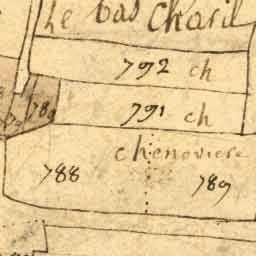 Le bas Charil
792 ch
791 ch
chenoviere
788
789